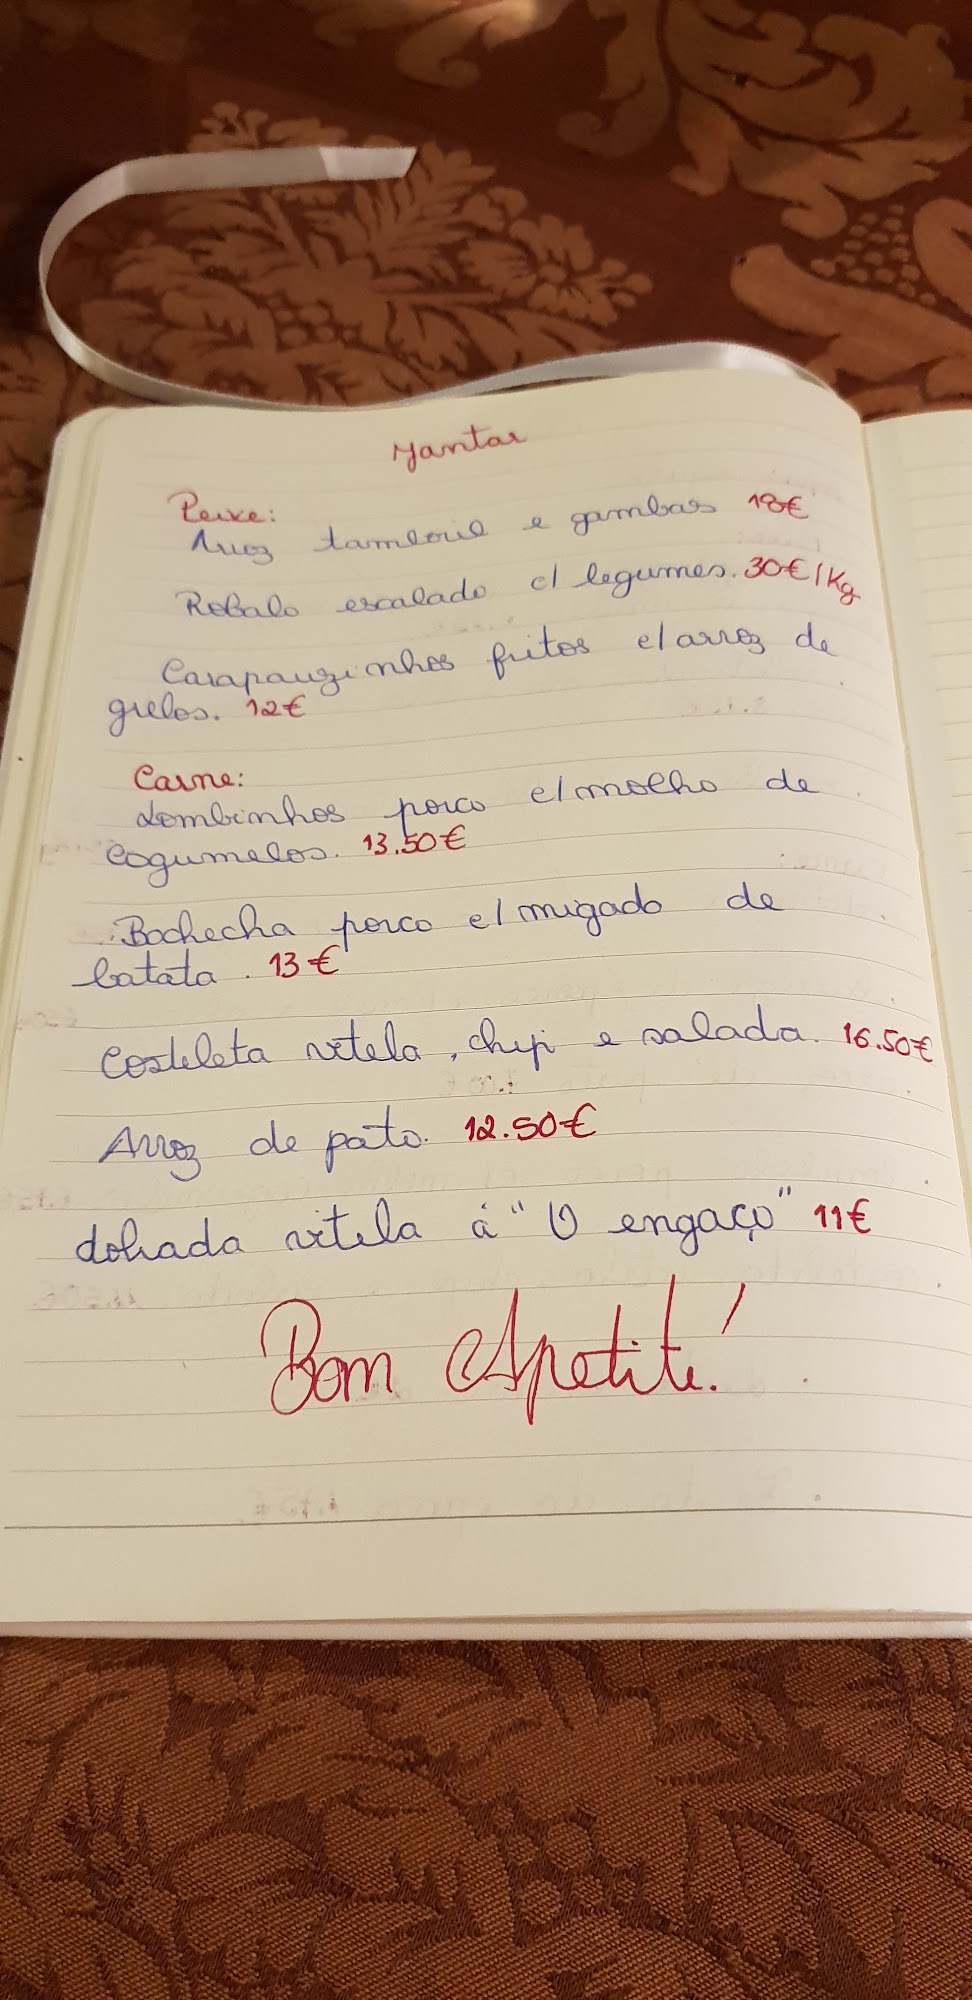 Jantar
Peixe:
Arroz tamboril e gambas 18€
Robalo escalado c/ legumes. 30€/Kg
Carapauzinhos fritos c/arroz de
grelos. 12€
Carne:
Lombinhos porco c/molho de
cogumelos. 13.50€
Bochecha porco c/migado de
batata. 13€
Costeleta vitela, chip e salada. 16.50€
Arroz de pato. 12.50€
dobrada vitela á "O engaço" 11€
Bom Apetite!